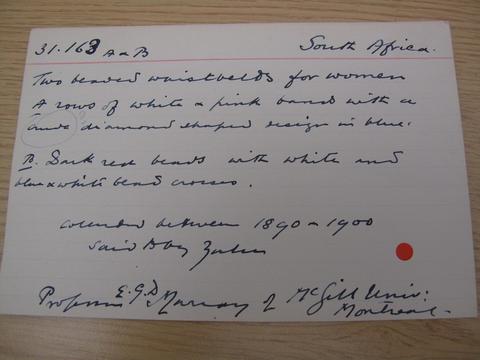 31.163 A & B South Africa.
Two beaded waistbelts for women
A rows of white & pink bands with a
diamond shaped design in blue.
B. Dark red beads with white and
blue & white bead crosses.
collected between 1890 - 1900
said to be Zulu
Professor E.G.D. Murray of McGill Univ:
Montreal.